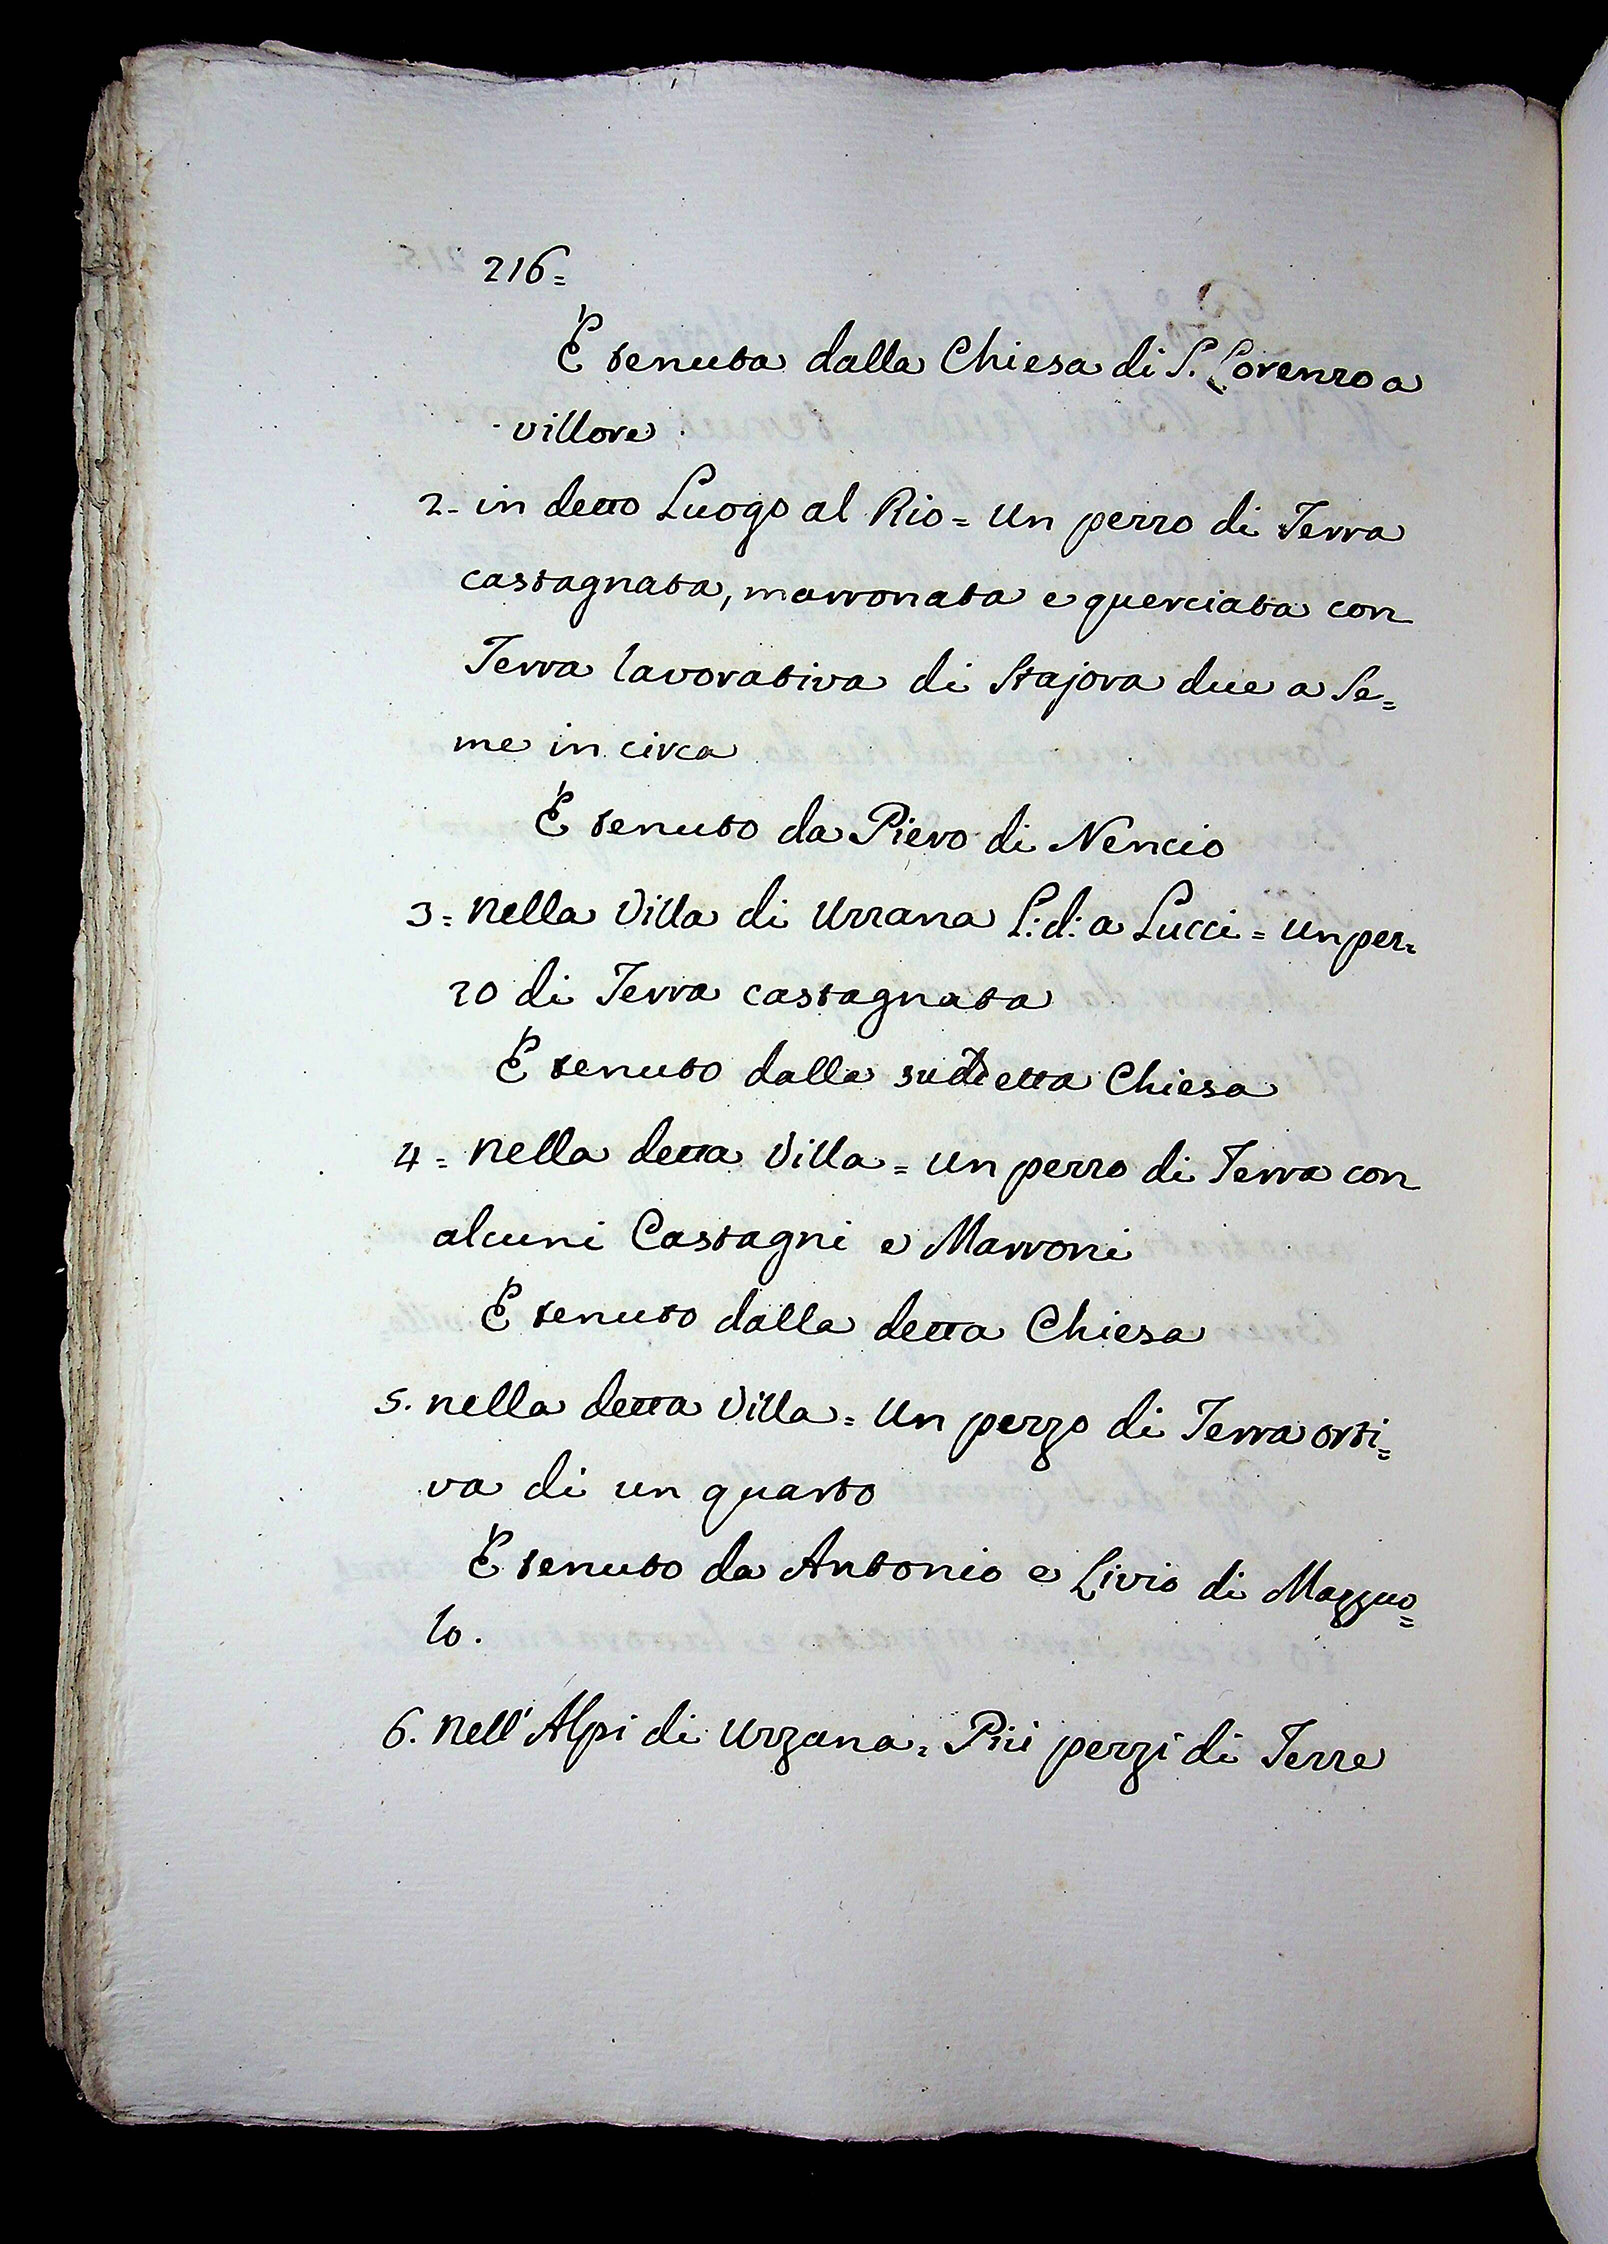 216=
È tenuta dalla Chiesa di S. Lorenzo a
villore
2- in detto Luogo al Rio= un pezzo di Terra
castagnata, marronata e querciata con
Terra lavorativa di Stajora due a Se=
me in circa
È tenuto da Piero di Nencio
3= nella Villa di Uzzana L: d: a Lucci= un pez=
zo di Terra castagnata
È tenuto dalla suddetta Chiesa
4= nella detta Villa= un pezzo di Terra con
alcuni Castagni e Marroni
È tenuto dalla detta Chiesa
5. nella detta Villa= un pezzo di Terra orti=
va di un quarto
È tenuto da Antonio e Livio di Mazzuo=
lo.
6. nell'Alpi di Uzzana= Più pezzi di Terre